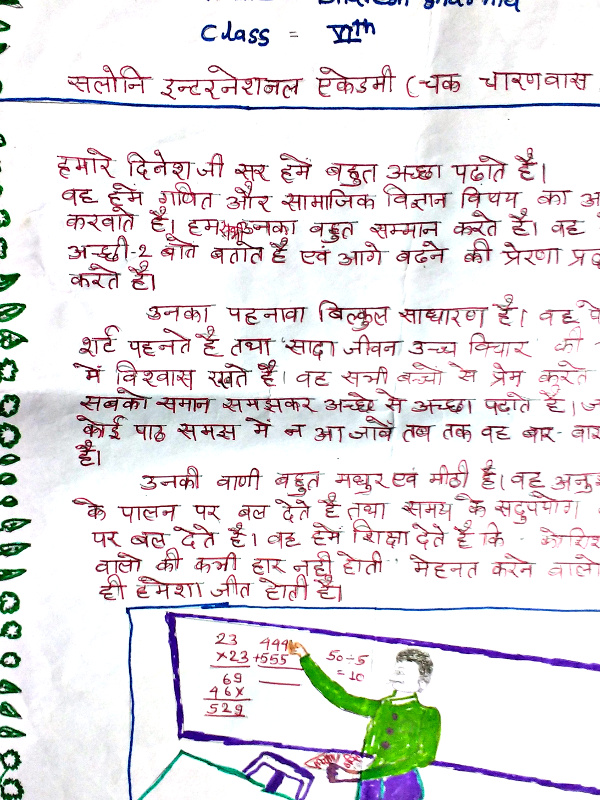 Class = VIth
सलोनि इन्टरनेशनल एकेडमी (चक चारणवास
हमारे दिनेश जी सर हमें बहुत अच्छा पढ़ाते है।
वह हमें गणित और सामाजिक विज्ञान विषय का अ
करवाते है। हम सभी उनका बहुत सम्मान करते है। वह
अच्छी-2 बाते बताते है एवं आगे बढ़ने की प्रेरणा प्रद
करते है।
उनका पहनावा बिल्कुल साधारण है। वह पे
शर्ट पहनते है तथा 'सादा जीवन उच्च विचार' की
में विश्वास रखते है। वह सभी बच्चो से प्रेम करते
सबको समान समझकर अच्छे से अच्छा पढ़ाते है। ज
कोई पाठ समझ में न आ जावे तब तक वह बार-बार
है।
उनकी वाणी बहुत मधुर एवं मीठी है। वह अनुश
के पालन पर बल देते है तथा समय के सदुपयोग
पर बल देते है। वह हमें शिक्षा देते है कि - कोशिश
वालो की कभी हार नही होती" मेहनत करने वालो
ही हमेशा जीत होती है।
23 444
×23 +555 50÷5
69 =10
46×
529